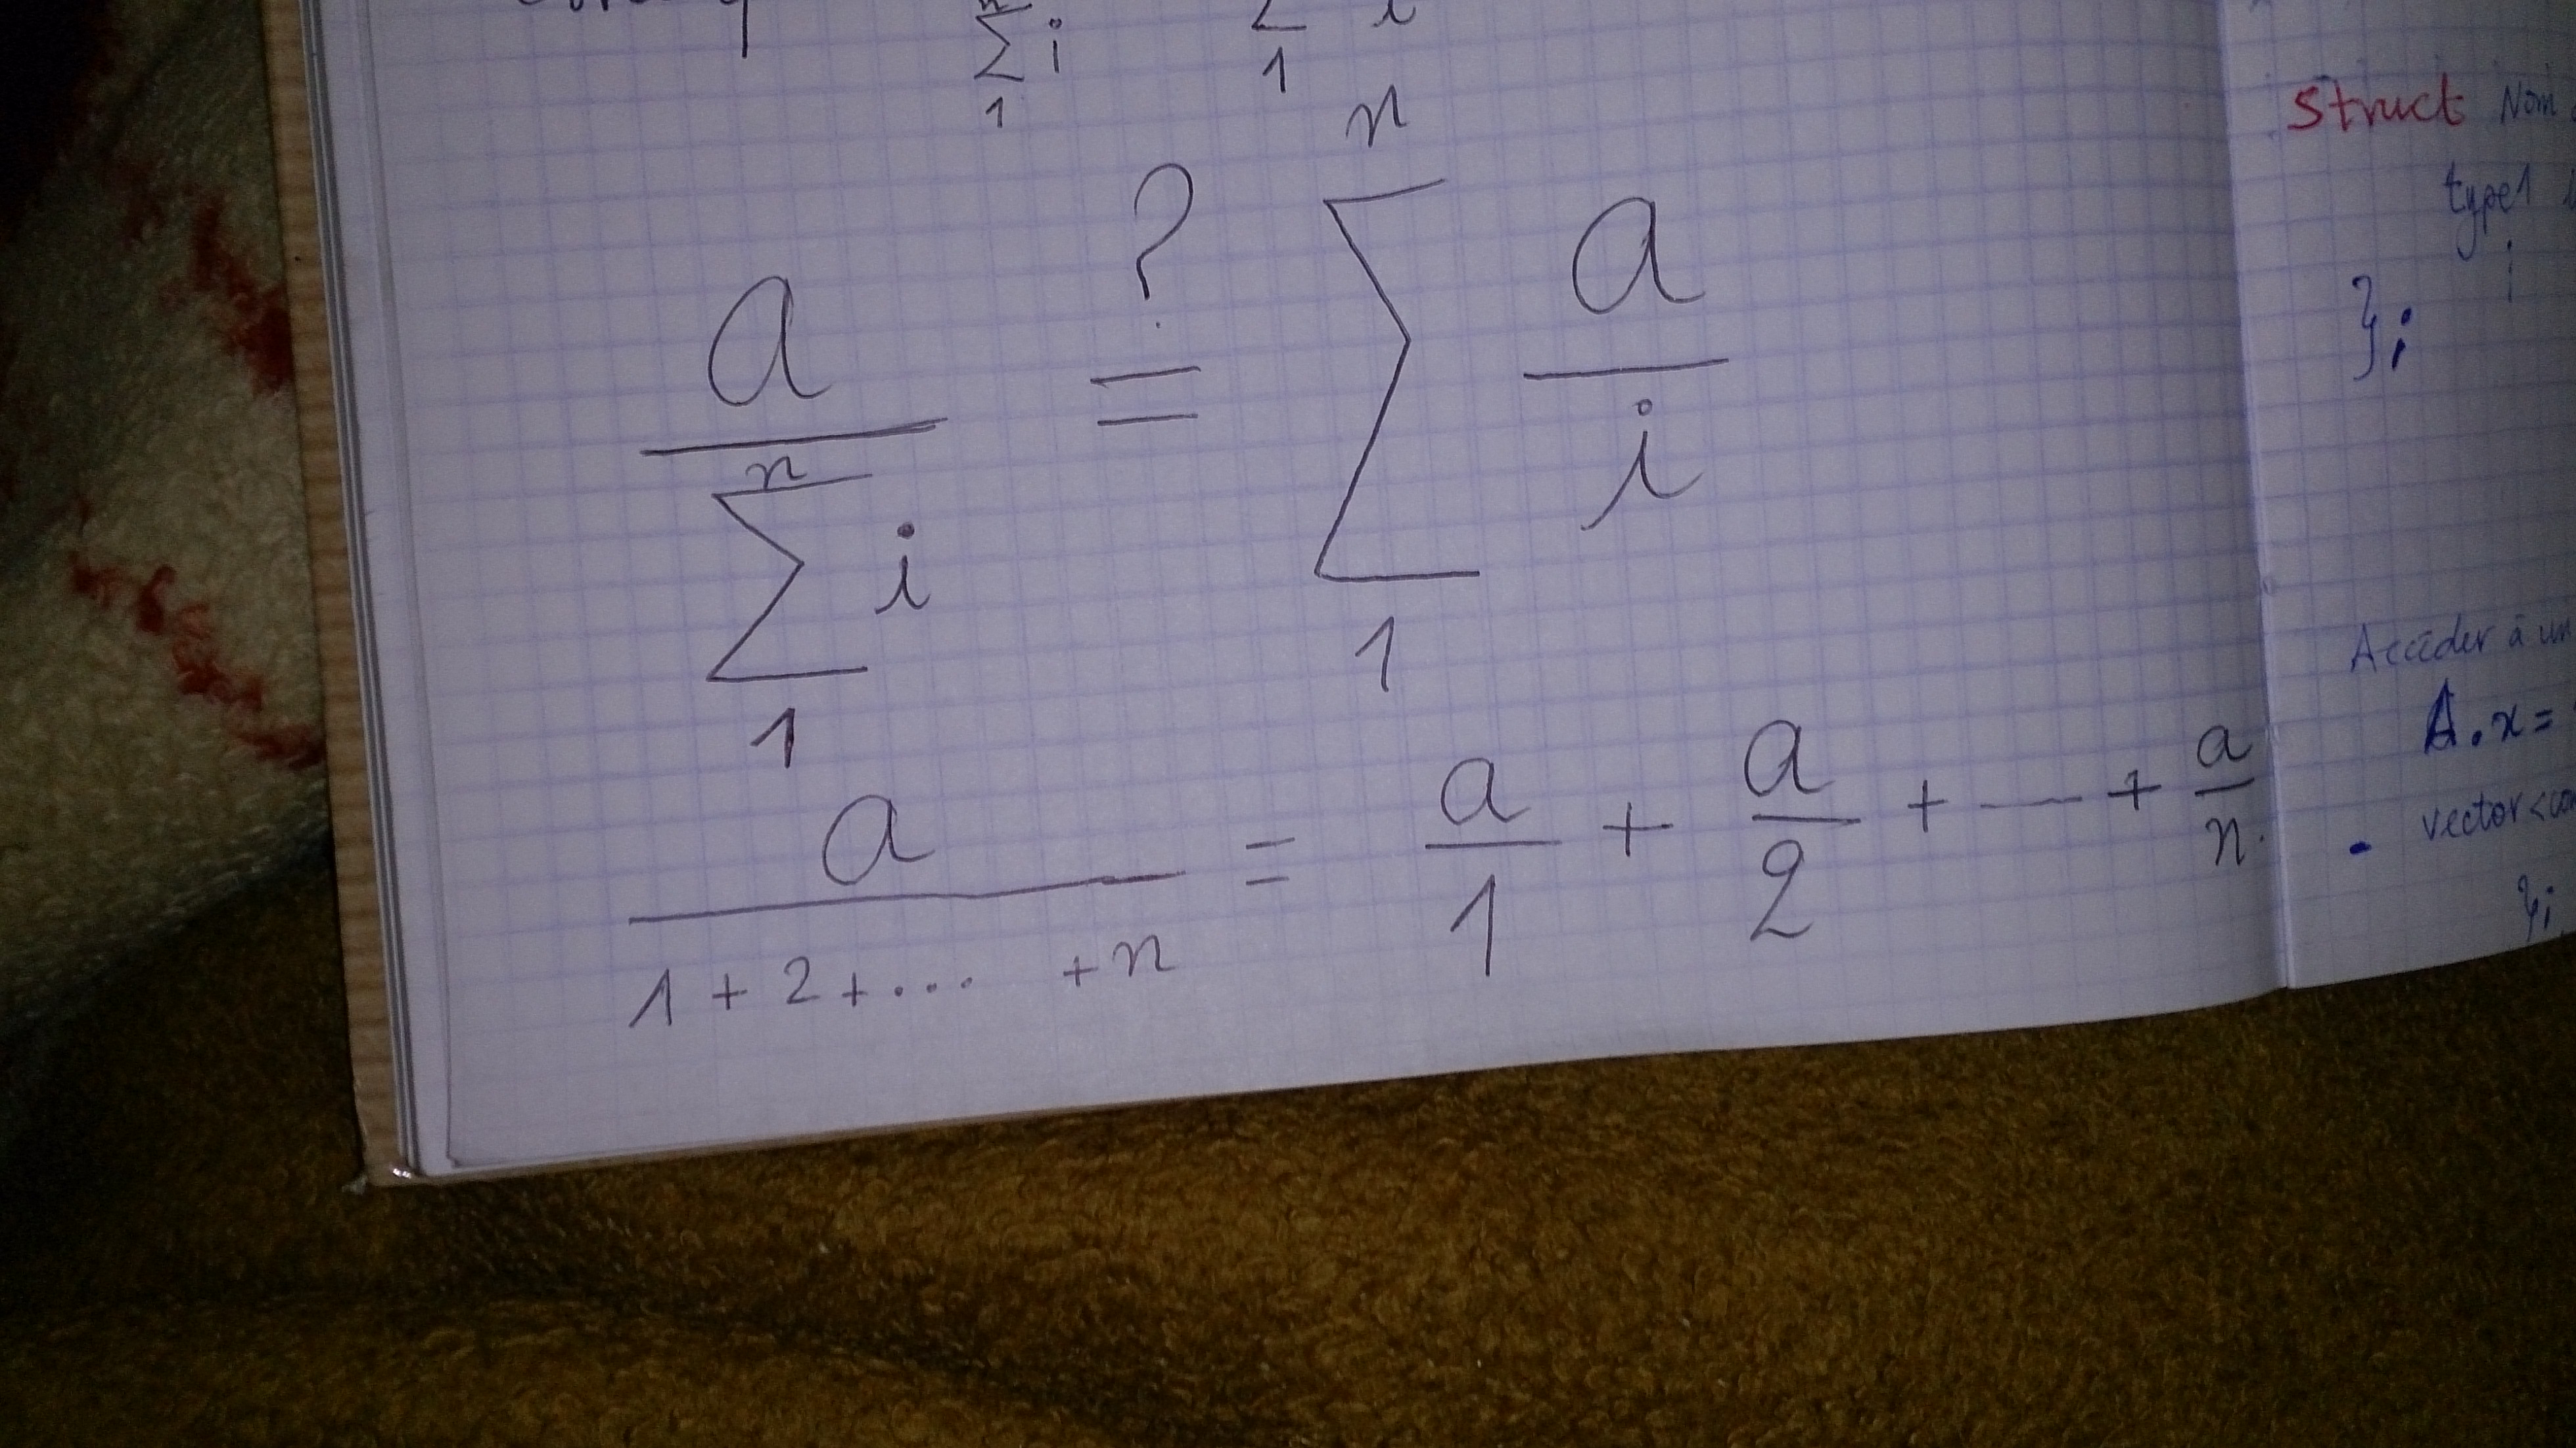 n
∑ i
1
1
a / ∑₁ⁿ i ?= ∑₁ⁿ a/i
a / (1 + 2 + ... + n) = a/1 + a/2 + — + a/n
struct Nom
type1
};
Accéder à un
A.x =
• vector<co
};